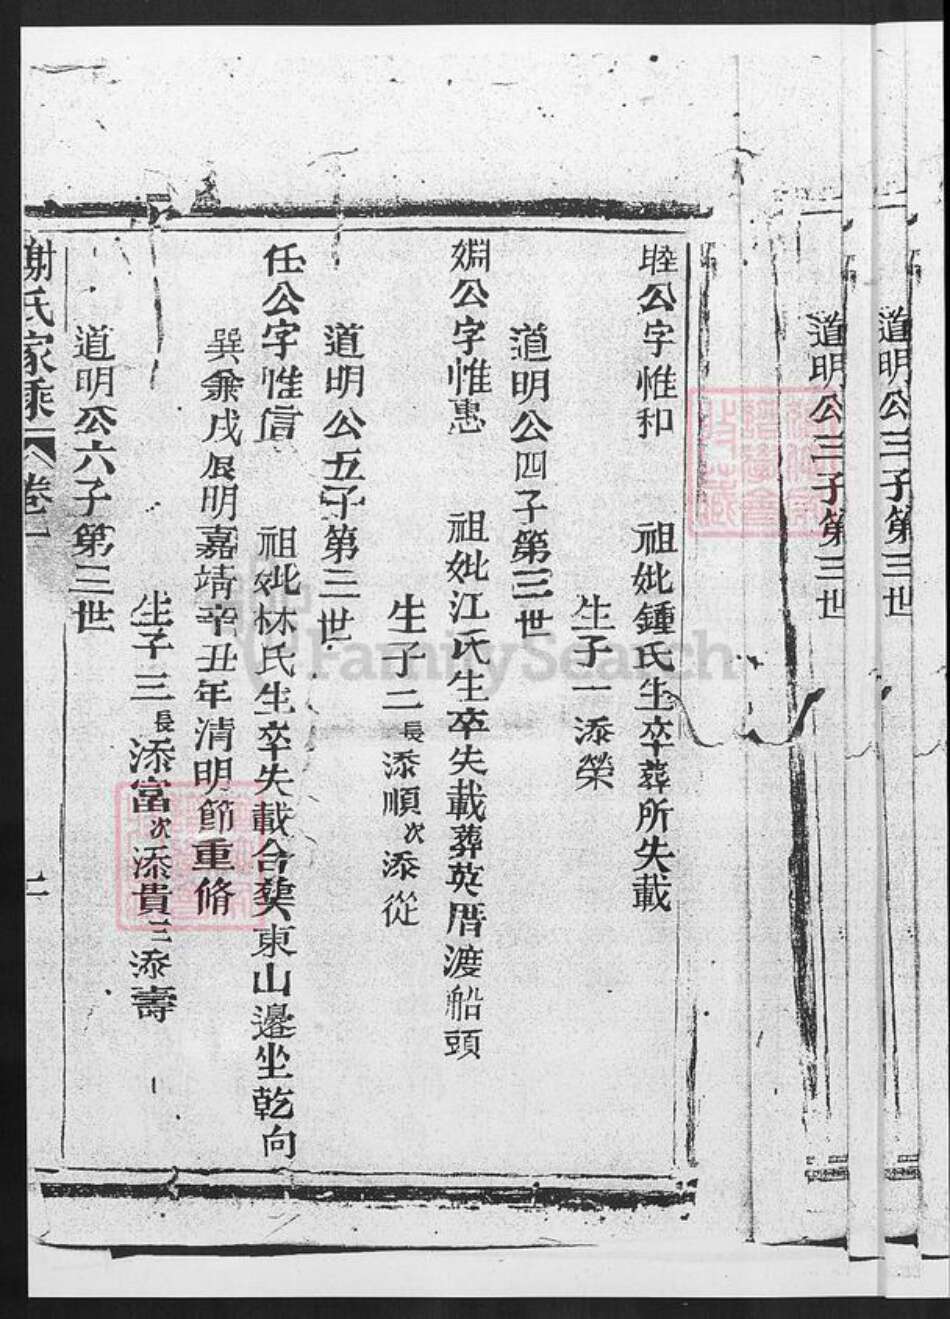 道明公三子第三世
道明公三子第三世
睦公字惟和 祖妣鍾氏生卒葬所失載
生子一 添榮
道明公四子第三世
婣公字惟惠 祖妣江氏生卒失載葬英厝渡船頭
生子二長添順次添從
道明公五子第三世
任公字惟信 祖妣林氏生卒失載合葬東山邊坐乾向
巽兼戌辰明嘉靖辛丑年清明節重脩
生子三長添富次添貴三添壽
道明公六子第三世
謝氏家乘 卷一 二
FamilySearch